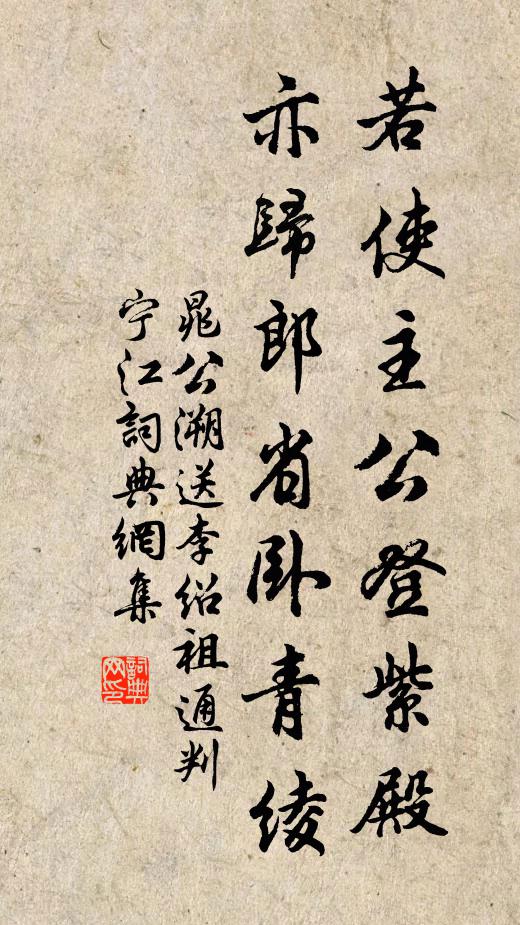 若使主公登紫殿
亦歸郎省卧青綾
晁公溯送李绍祖通判
宁江詞典網集
詞典网印